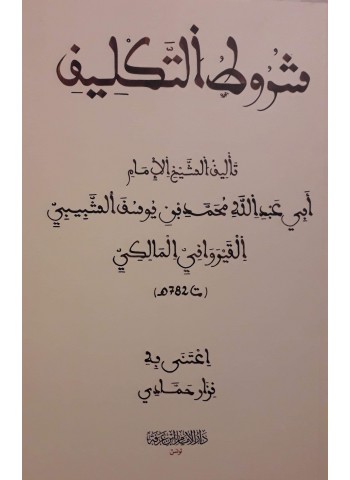 شروط التكليف
تأليف الشيخ الإمام
أبي عبد الله محمد بن يوسف الشبيبي
القيرواني المالكي
(ت 782هـ)
اعتنى به
نزار حمادي
دار الإمام ابن عرفة
تونس